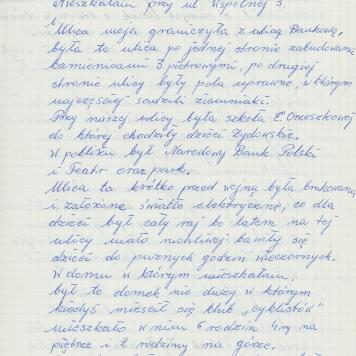 mieszkałam przy ul Wspólnej 3,
i
Ulica moja graniczyła z ulicą Bankową,
była to ulica po jednej stronie zabudowana
kamienicami 3 piętrowymi, po drugiej
stronie ulicy były pola uprawne, w którym
najczęściej sadzili ziemniaki.
Przy naszej ulicy była szkoła E Orzeszkowej
do której chodziły dzieci żydowskie.
W pobliżu był Narodowy Bank Polski
i Teatr oraz park.
Ulica ta krótko przed wojną była brukowana
i założone światło elektryczne, co dla
dzieci był cały raj bo latem na tej
ulicy mało ruchliwej bawiły się
dzieci do późnych godzin wieczornych.
W domu w którym mieszkałam,
był to domek nie duży w którym
kiedyś mieścił się klub „cyklistów"
mieszkało w nim 6 rodzin 4ry na
piętrze i 2 rodziny na górze.